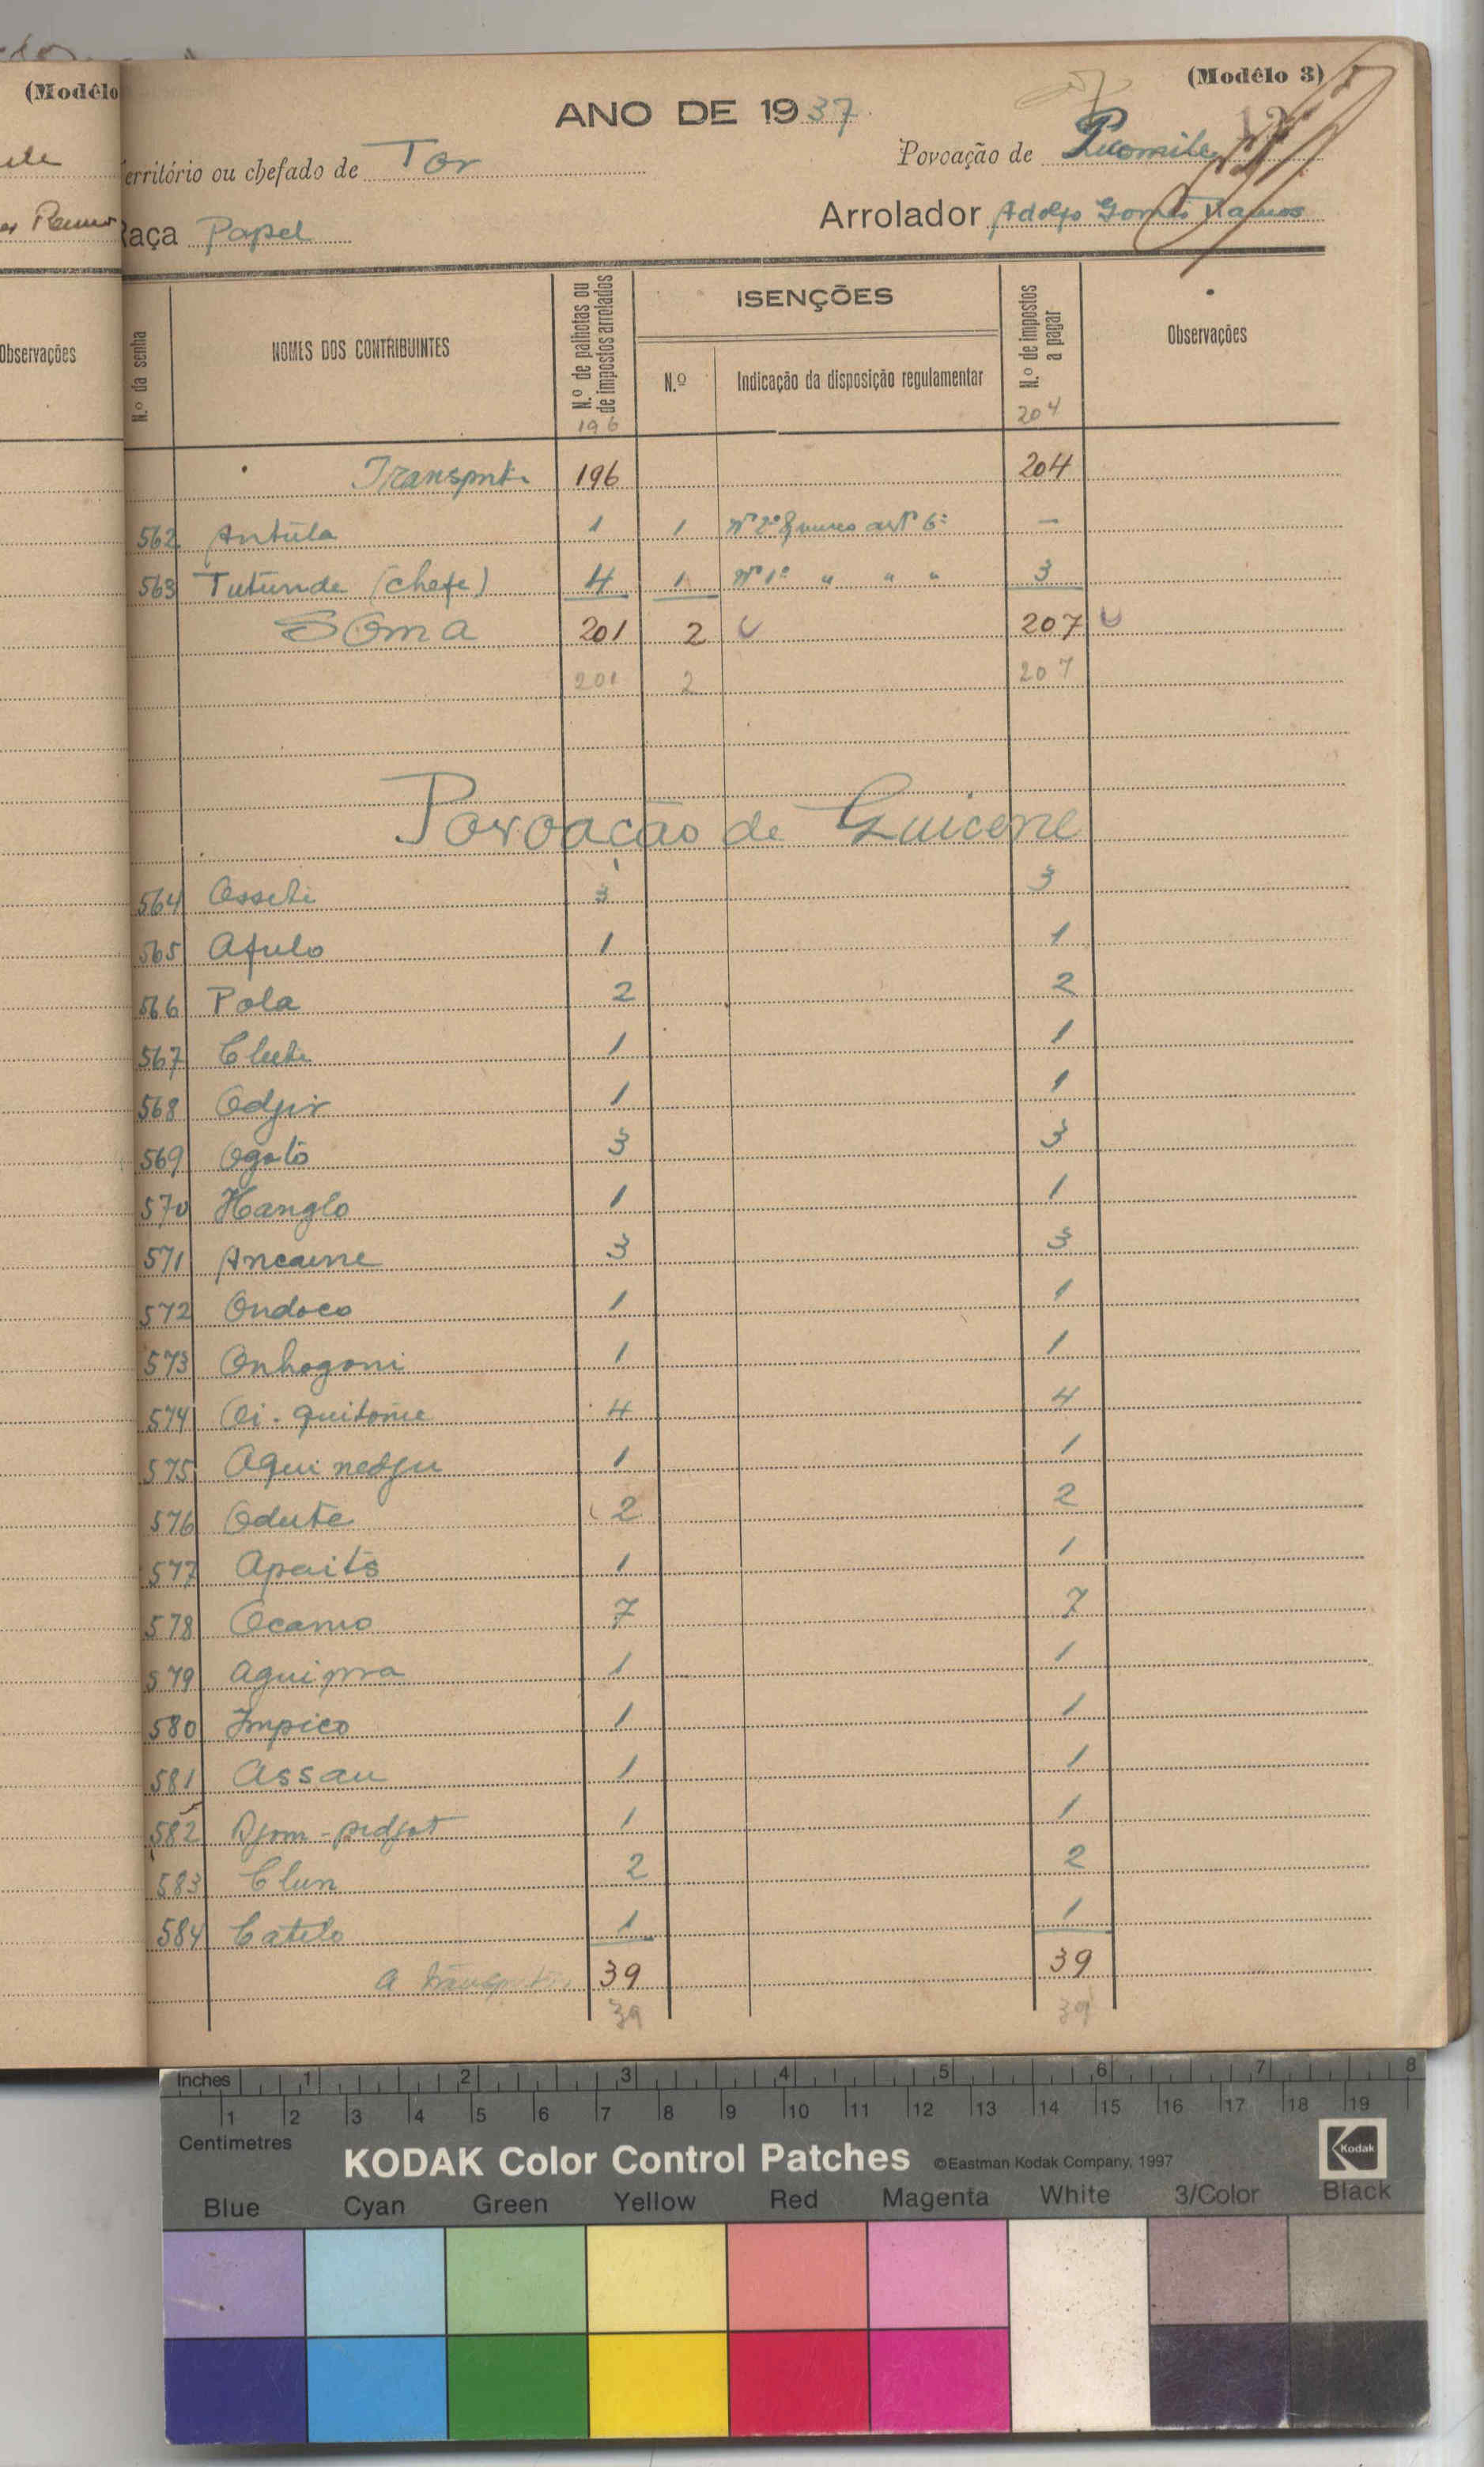 (Modêlo
(Modêlo 3)
ANO DE 1937
erritório ou chefado de Tor
Povoação de
Raça Papel
Arrolador Adolfo Gomes Ramos
Observações
N.º da senha
NOMES DOS CONTRIBUINTES
N.º de palhotas ou de impostos arrolados
196
ISENÇÕES
N.º
Indicação da disposição regulamentar
N.º de impostos a pagar
204
Observações
Transporte 196 204
562 Antula 1 1 Nº 2º artº 6º —
563 Tutunde (chefe) 4 1 Nº 1º " " " 3
Soma 201 2 207
201 2 207
Povoação de Guicene
564 3 3
565 Afulo 1 1
566 Pola 2 2
567 1 1
568 Odjir 1 1
569 Ogató 3 3
570 Hanglo 1 1
571 Ancaine 3 3
572 Ondoco 1 1
573 Onhogoni 1 1
574 Oi-quitome 4 4
575 Aquinedju 1 1
576 Odute 2 2
577 Apaito 1 1
578 Ocanio 7 7
579 1 1
580 Impico 1 1
581 Assau 1 1
582 Djom-pidjot 1 1
583 Clun 2 2
584 Catelo 1 1
A transportar 39 39
39 39
Inches 1 2 3 4 5 6 7 8
1 2 3 4 5 6 7 8 9 10 11 12 13 14 15 16 17 18 19
Centimetres
KODAK Color Control Patches ©Eastman Kodak Company, 1997 Kodak
Blue Cyan Green Yellow Red Magenta White 3/Color Black